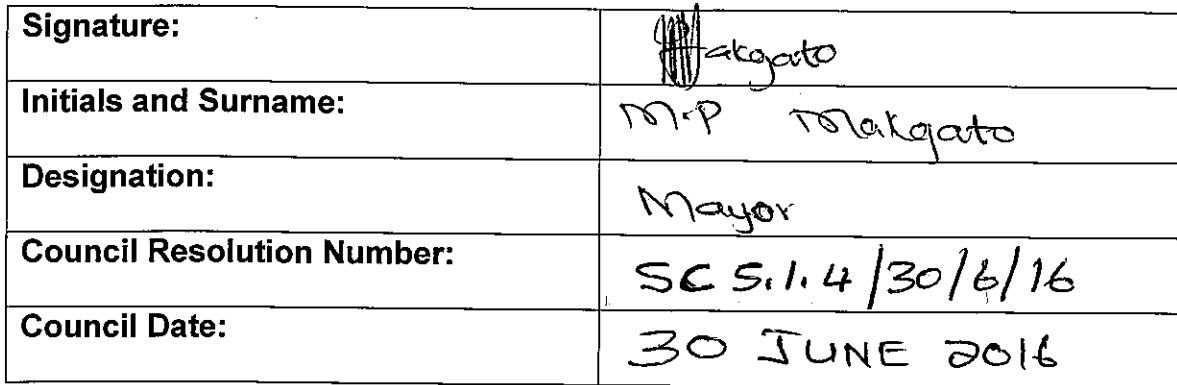 Signature: Makgato
Initials and Surname: M.P Makgato
Designation: Mayor
Council Resolution Number: SC 5.1.4/30/6/16
Council Date: 30 JUNE 2016